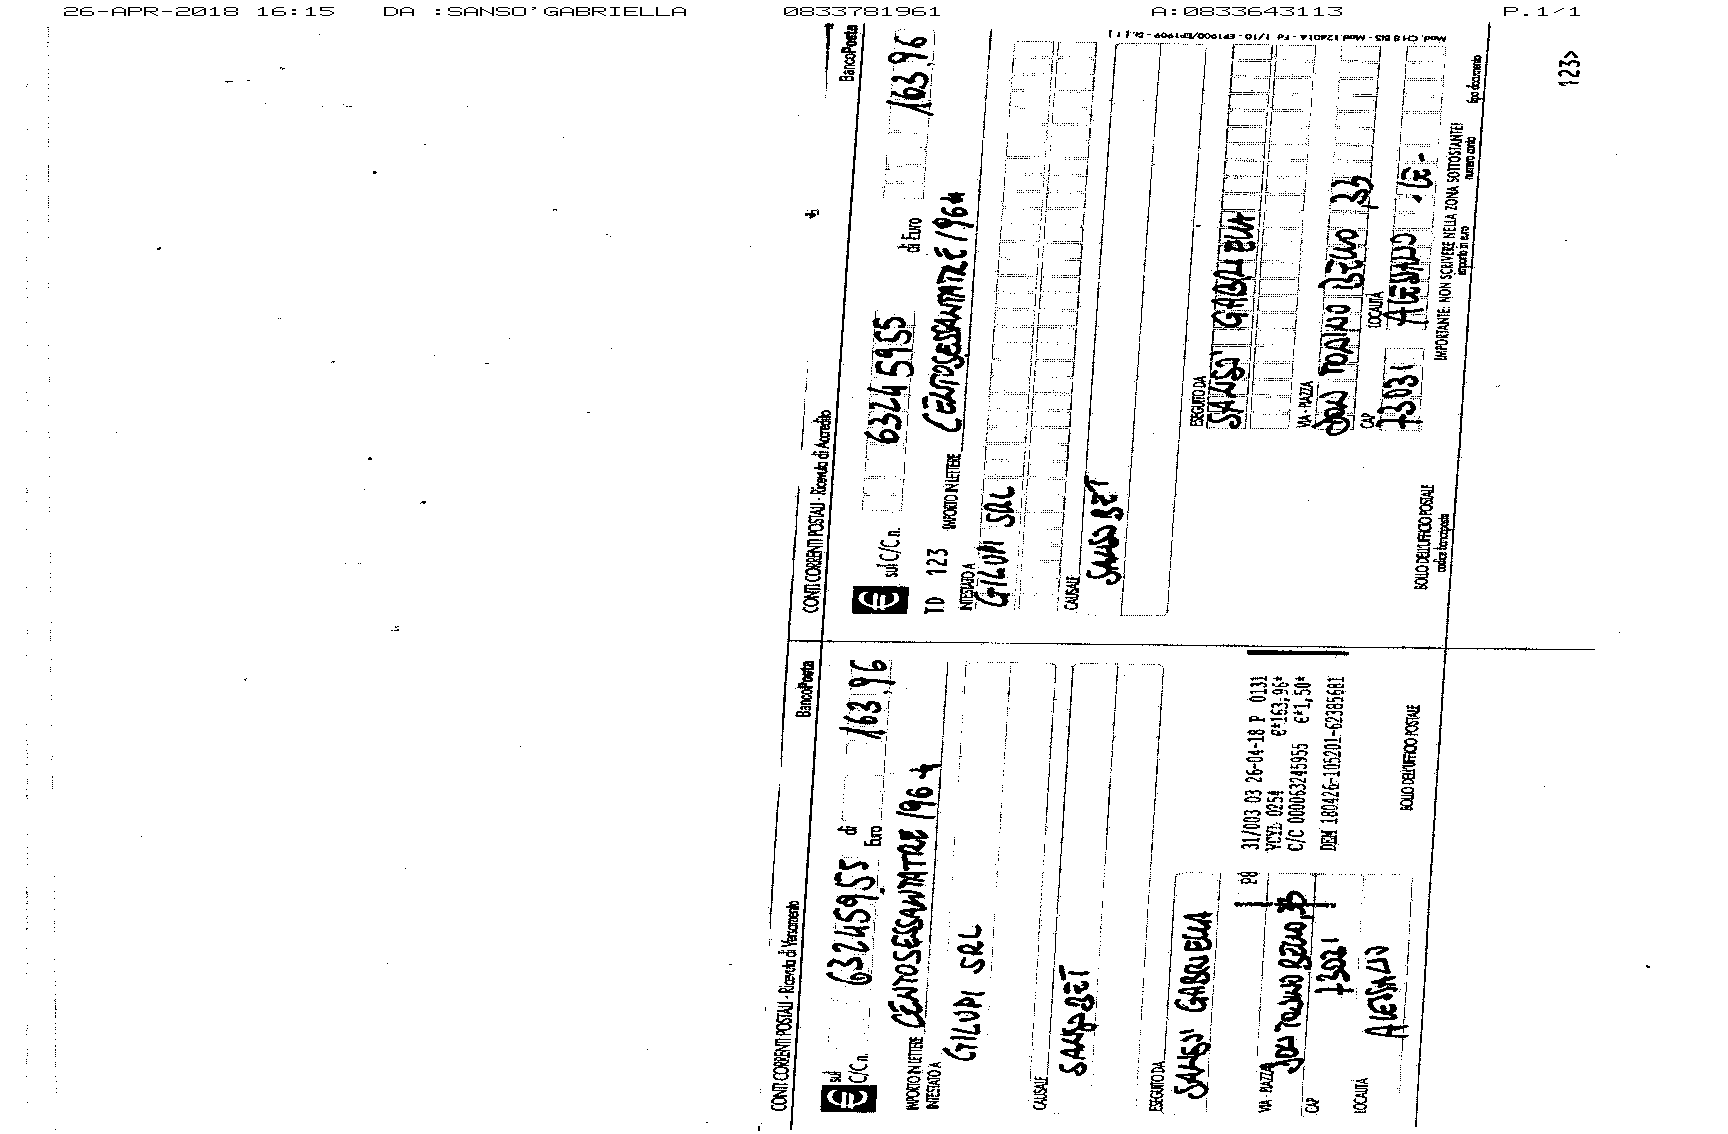 26-APR-2018 16:15 DA :SANSO'GABRIELLA 0833781961 A:0833643113 P.1/1
CONTI CORRENTI POSTALI - Ricevuta di Versamento BancoPosta
€ sul C/C n. 63245955 di Euro 163,96
IMPORTO IN LETTERE CENTOSESSANTATRE/96
INTESTATO A
GILUPI SRL
CAUSALE
SANSOBET
ESEGUITO DA
SANSO' GABRIELLA
VIA - PIAZZA DON TONINO BELLO, 33
CAP 73031
LOCALITÀ ALESSANO
P8
31/003 03 26-04-18 P 0131
VCYL 0254 €*163,96*
C/C 000063245955 €*1,50*
DEM 180426-105201-62385681
BOLLO DELL'UFFICIO POSTALE
CONTI CORRENTI POSTALI - Ricevuta di Accredito BancoPosta
€ sul C/C n. 63245955 di Euro 163,96
TD 123 IMPORTO IN LETTERE CENTOSESSANTATRE/96
INTESTATO A
GILUPI SRL
CAUSALE
SANSOBET
ESEGUITO DA
SANSO' GABRIELLA
VIA - PIAZZA
DON TONINO BELLO 33
CAP LOCALITÀ
73031 ALESSANO -LE-
BOLLO DELL'UFFICIO POSTALE
codice bancoposta
IMPORTANTE: NON SCRIVERE NELLA ZONA SOTTOSTANTE!
importo in euro numero conto tipo documento
123>
Mod. CH 8 BIS - Mod. 124014 - Ed. 1/10 - EP1900/EP1909 - St. [ 1 ]